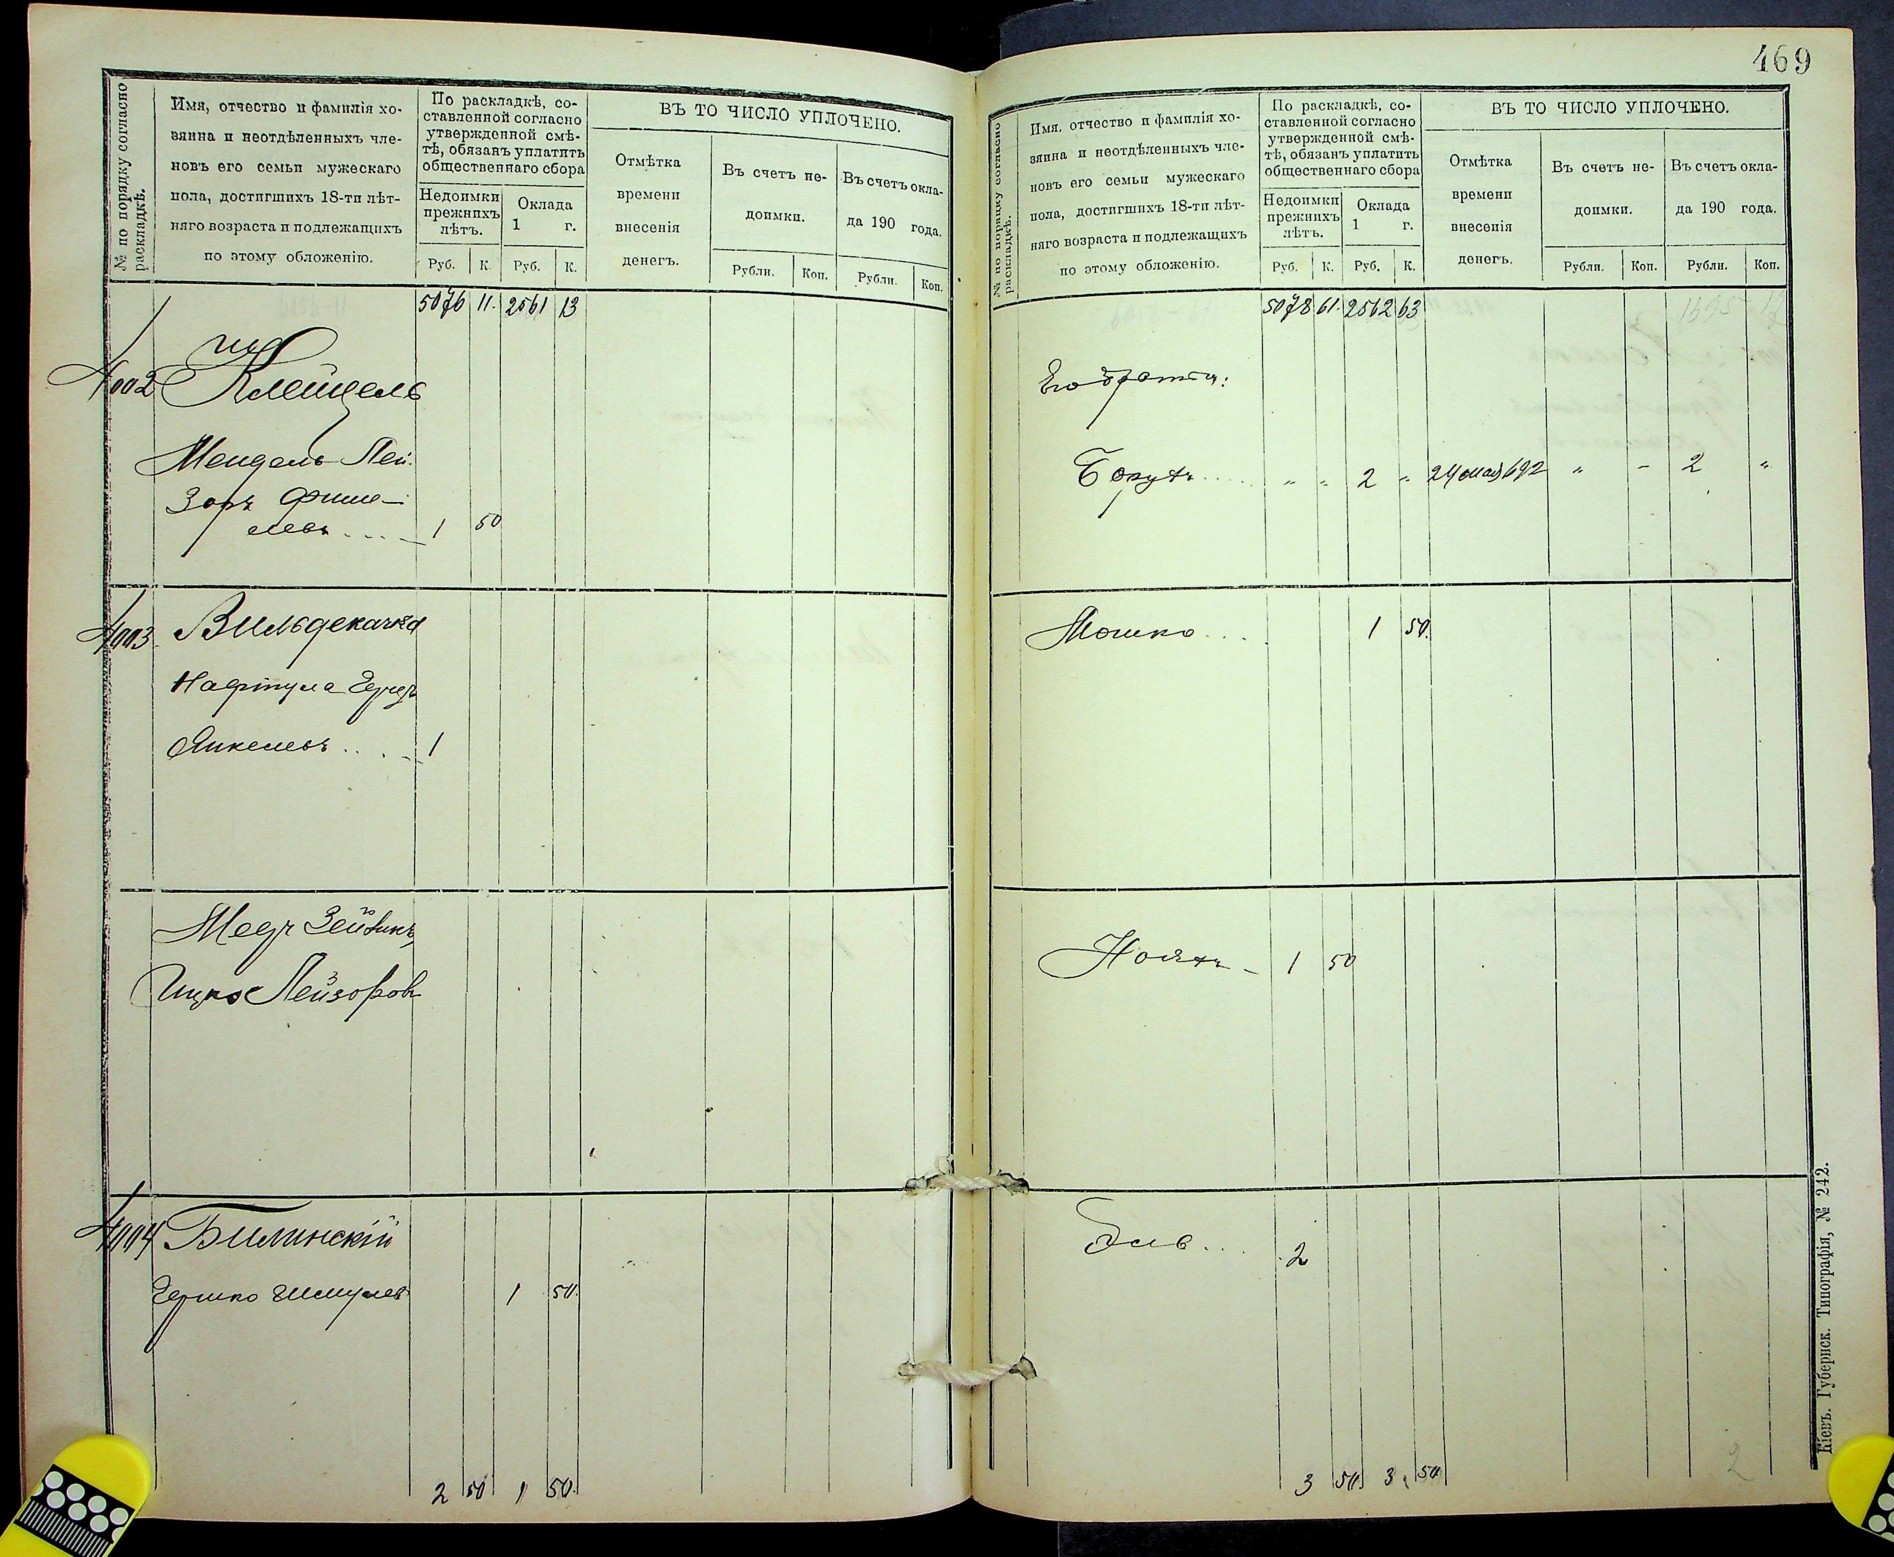 469
№ по порядку согласно
раскладкѣ.
Имя, отчество и фамилія хо-
зяина и неотдѣленныхъ чле-
новъ его семьи мужескаго
пола, достигшихъ 18-ти лѣт-
няго возраста и подлежащихъ
по этому обложенію.
По раскладкѣ, со-
ставленной согласно
утвержденной смѣ-
тѣ, обязанъ уплатить
общественнаго сбора
Недоимки
прежнихъ
лѣтъ.
Оклада
1 г.
Руб. К. Руб. К.
ВЪ ТО ЧИСЛО УПЛОЧЕНО.
Отмѣтка
времени
внесенія
денегъ.
Въ счетъ не-
доимки.
Въ счетъ окла-
да 190 года.
Рубли. Коп. Рубли. Коп.
5076 11. 2561 13
4002 Клейцель
Мендель Лей-
зоръ Фише-
левъ 1 50
4003 Вильдекачка
Нафтула Герцъ
Янкелевъ 1
Медъ Зейликъ
Ицко Лейзоровъ
4004 Билинскій
Гершко Шмулев 1 50.
2 50 1 50.
№ по порядку согласно
раскладкѣ.
Имя. отчество и фамилія хо-
зяина и неотдѣленныхъ чле-
новъ его семьи мужескаго
пола, достигшихъ 18-ти лѣт-
няго возраста и подлежащихъ
по этому обложенію.
По раскладкѣ, со-
ставленной согласно
утвержденной смѣ-
тѣ, обязанъ уплатить
общественнаго сбора
Недоимки
прежнихъ
лѣтъ.
Оклада
1 г.
Руб. К. Руб. К.
ВЪ ТО ЧИСЛО УПЛОЧЕНО.
Отмѣтка
времени
внесенія
денегъ.
Въ счетъ не-
доимки.
Въ счетъ окла-
да 190 года.
Рубли. Коп. Рубли. Коп.
5078 61. 2562 63
Его братья:
Борухъ „ „ 2 „ 24 мая 692 „ - 2 „
Мошко 1 50.
Нояхъ - 1 50
Эль 2
3 50 3 50
2
Кіевъ. Губернск. Типографія, № 242.